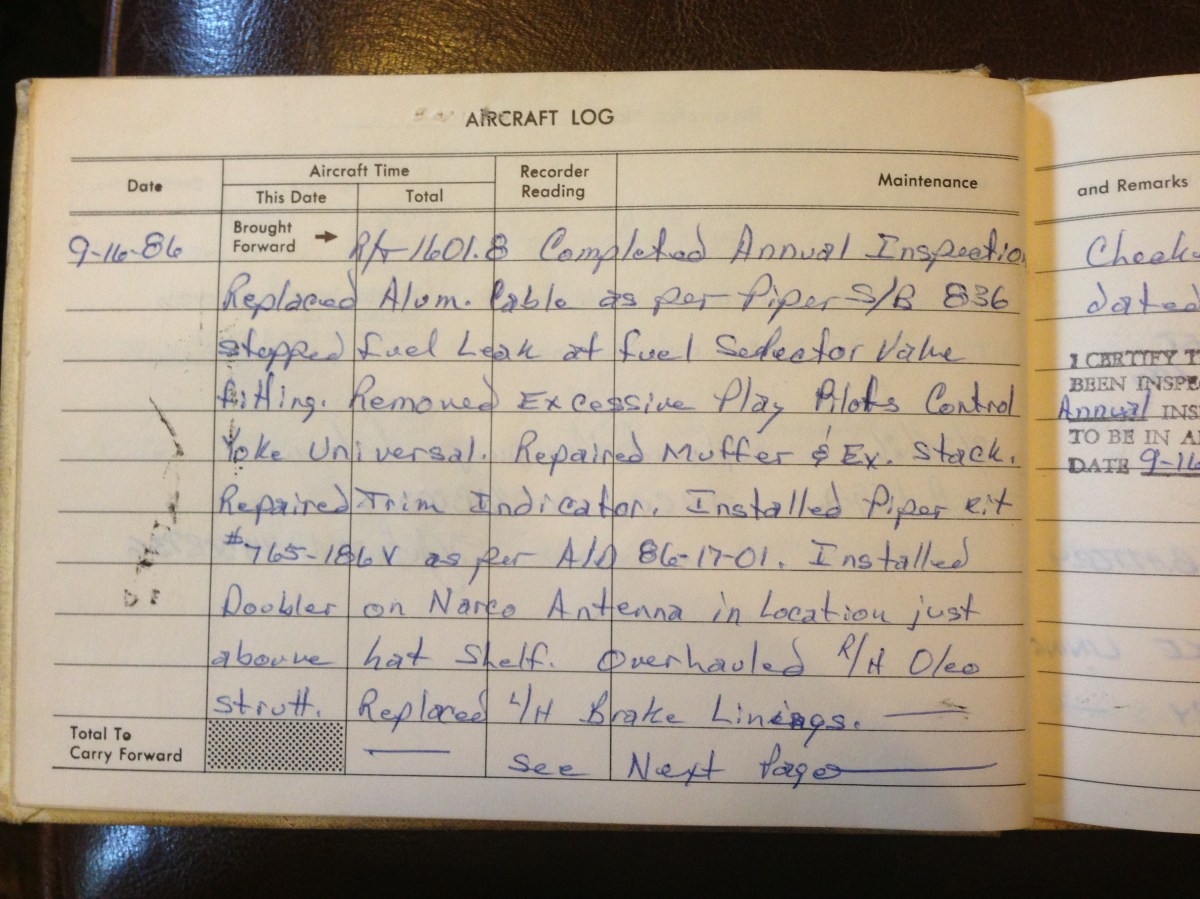 AIRCRAFT LOG
Date
Aircraft Time
This Date
Total
Recorder
Reading
Maintenance
and Remarks
Brought
Forward →
9-16-86 R/T-1601.8 Completed Annual Inspectio
Replaced Alum. Cable as per Piper S/B 836
stopped fuel Leak at fuel Selector Valve
fitting. Removed Excessive Play Pilots Control
Yoke Universal. Repaired Muffer & Ex. Stack.
Repaired Trim Indicator. Installed Piper Kit
#765-186V as per A/D 86-17-01. Installed
Doubler on Narco Antenna in Location just
abouve hat Shelf. Overhauled R/H Oleo
strutt. Replaced L/H Brake Linings.
Total To
Carry Forward
See Next Page
Check
dated
I CERTIFY T
BEEN INSPE
Annual INS
TO BE IN A
DATE 9-16